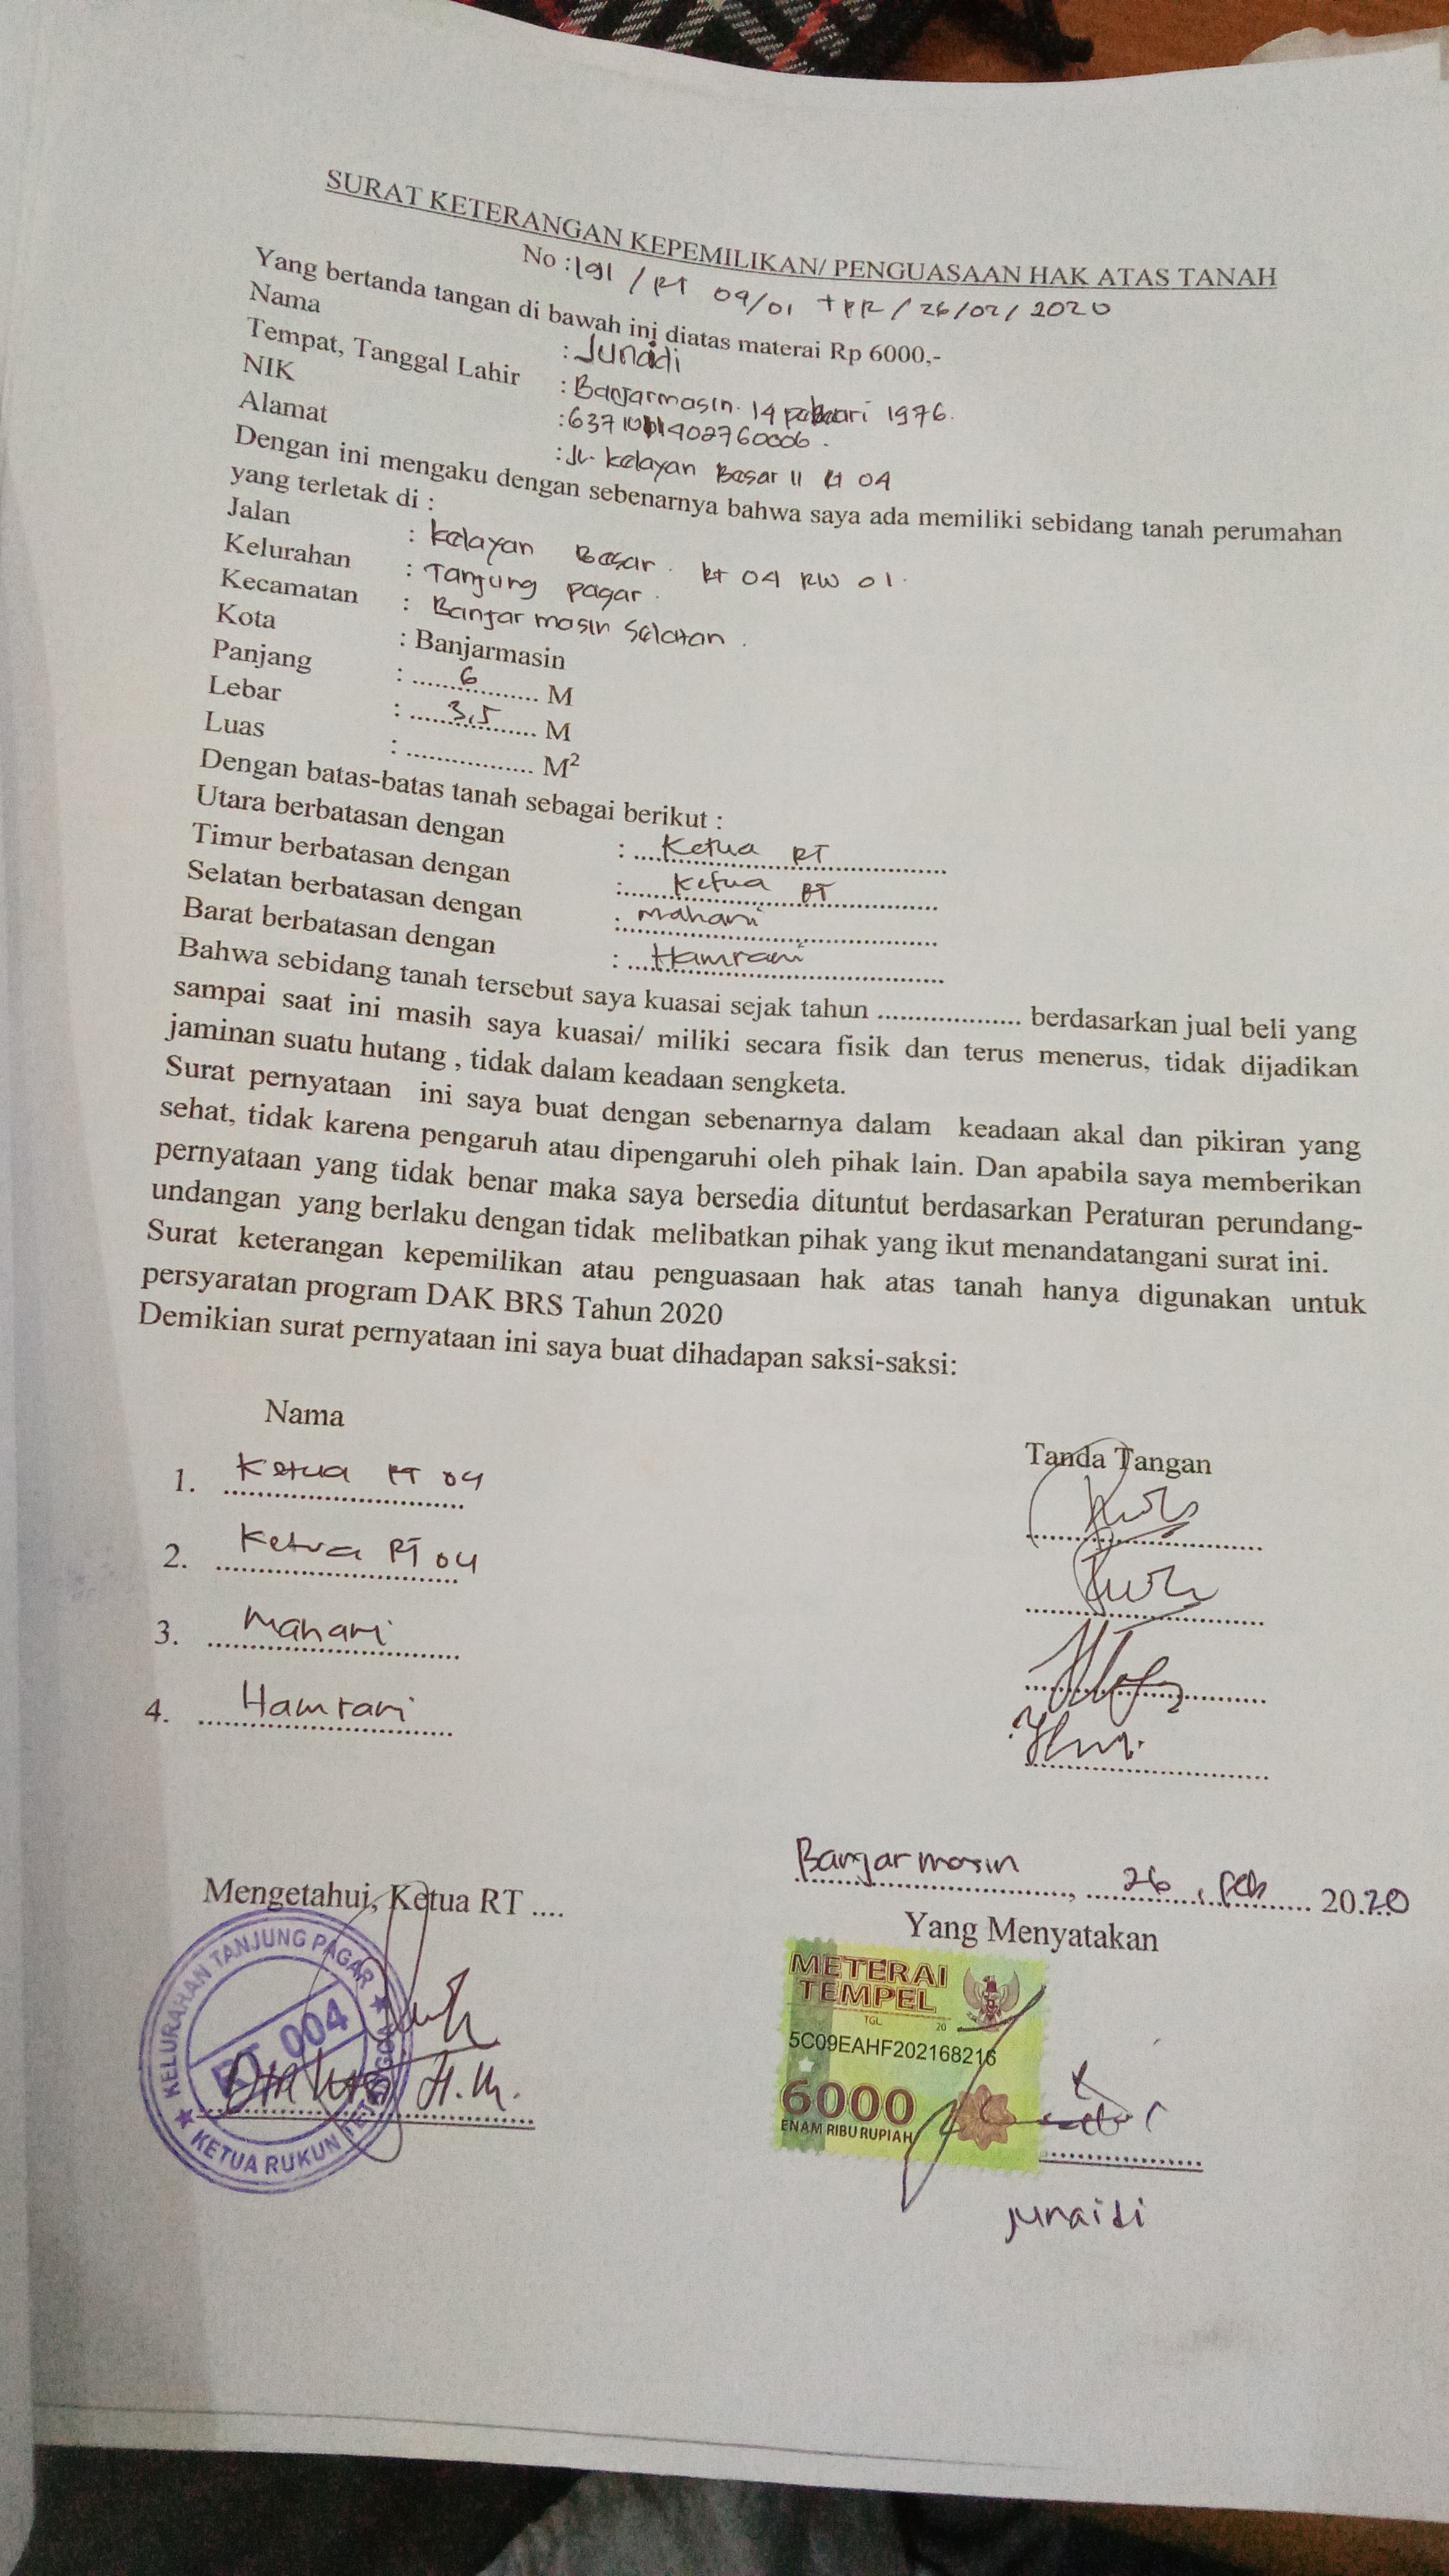 SURAT KETERANGAN KEPEMILIKAN/ PENGUASAAN HAK ATAS TANAH
No : 191 / RT 04/01 TPR / 26/02/ 2020
Yang bertanda tangan di bawah ini diatas materai Rp 6000,-
Nama : Junaidi
Tempat, Tanggal Lahir : Banjarmasin. 14 1976.
NIK
Alamat : Jl. Kelayan Besar II Rt 04
Dengan ini mengaku dengan sebenarnya bahwa saya ada memiliki sebidang tanah perumahan
yang terletak di :
Jalan : Kelayan Besar. Rt 04 RW 01.
Kelurahan : Tanjung pagar.
Kecamatan : Banjarmasin Selatan.
Kota : Banjarmasin
Panjang : ......6...... M
Lebar : ......3,5...... M
Luas : ................. M²
Dengan batas-batas tanah sebagai berikut :
Utara berbatasan dengan : Ketua RT
Timur berbatasan dengan : Ketua RT
Selatan berbatasan dengan : Mahari
Barat berbatasan dengan : Hamrani
Bahwa sebidang tanah tersebut saya kuasai sejak tahun ................... berdasarkan jual beli yang
sampai saat ini masih saya kuasai/ miliki secara fisik dan terus menerus, tidak dijadikan
jaminan suatu hutang , tidak dalam keadaan sengketa.
Surat pernyataan ini saya buat dengan sebenarnya dalam keadaan akal dan pikiran yang
sehat, tidak karena pengaruh atau dipengaruhi oleh pihak lain. Dan apabila saya memberikan
pernyataan yang tidak benar maka saya bersedia dituntut berdasarkan Peraturan perundang-
undangan yang berlaku dengan tidak melibatkan pihak yang ikut menandatangani surat ini.
Surat keterangan kepemilikan atau penguasaan hak atas tanah hanya digunakan untuk
persyaratan program DAK BRS Tahun 2020
Demikian surat pernyataan ini saya buat dihadapan saksi-saksi:
Nama Tanda Tangan
1. Ketua RT 04
2. Ketua RT 04
3. Mahari
4. Hamrani
Banjarmasin, 26, Feb 20.20
Mengetahui, Ketua RT ....
Yang Menyatakan
KELURAHAN TANJUNG PAGAR
RT 004
KETUA RUKUN TETANGGA
H.M.
METERAI
TEMPEL
TGL 20
5C09EAHF202168216
6000
ENAM RIBU RUPIAH
Junaidi